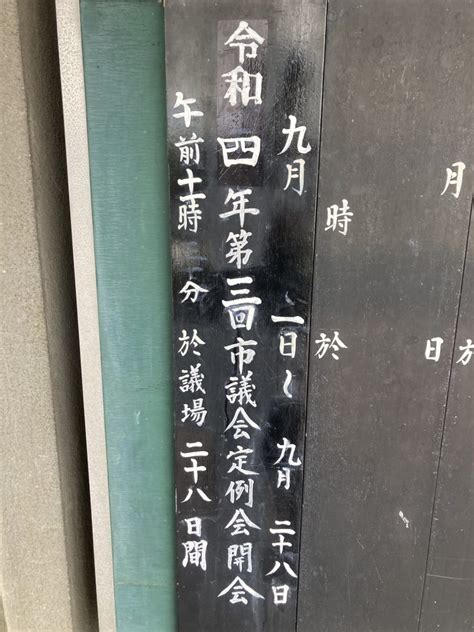 於
月 日
時 於
九月 一日〜九月 二十八日
令和四年第三回市議会定例会開会
午前十時 分 於議場 二十八日間